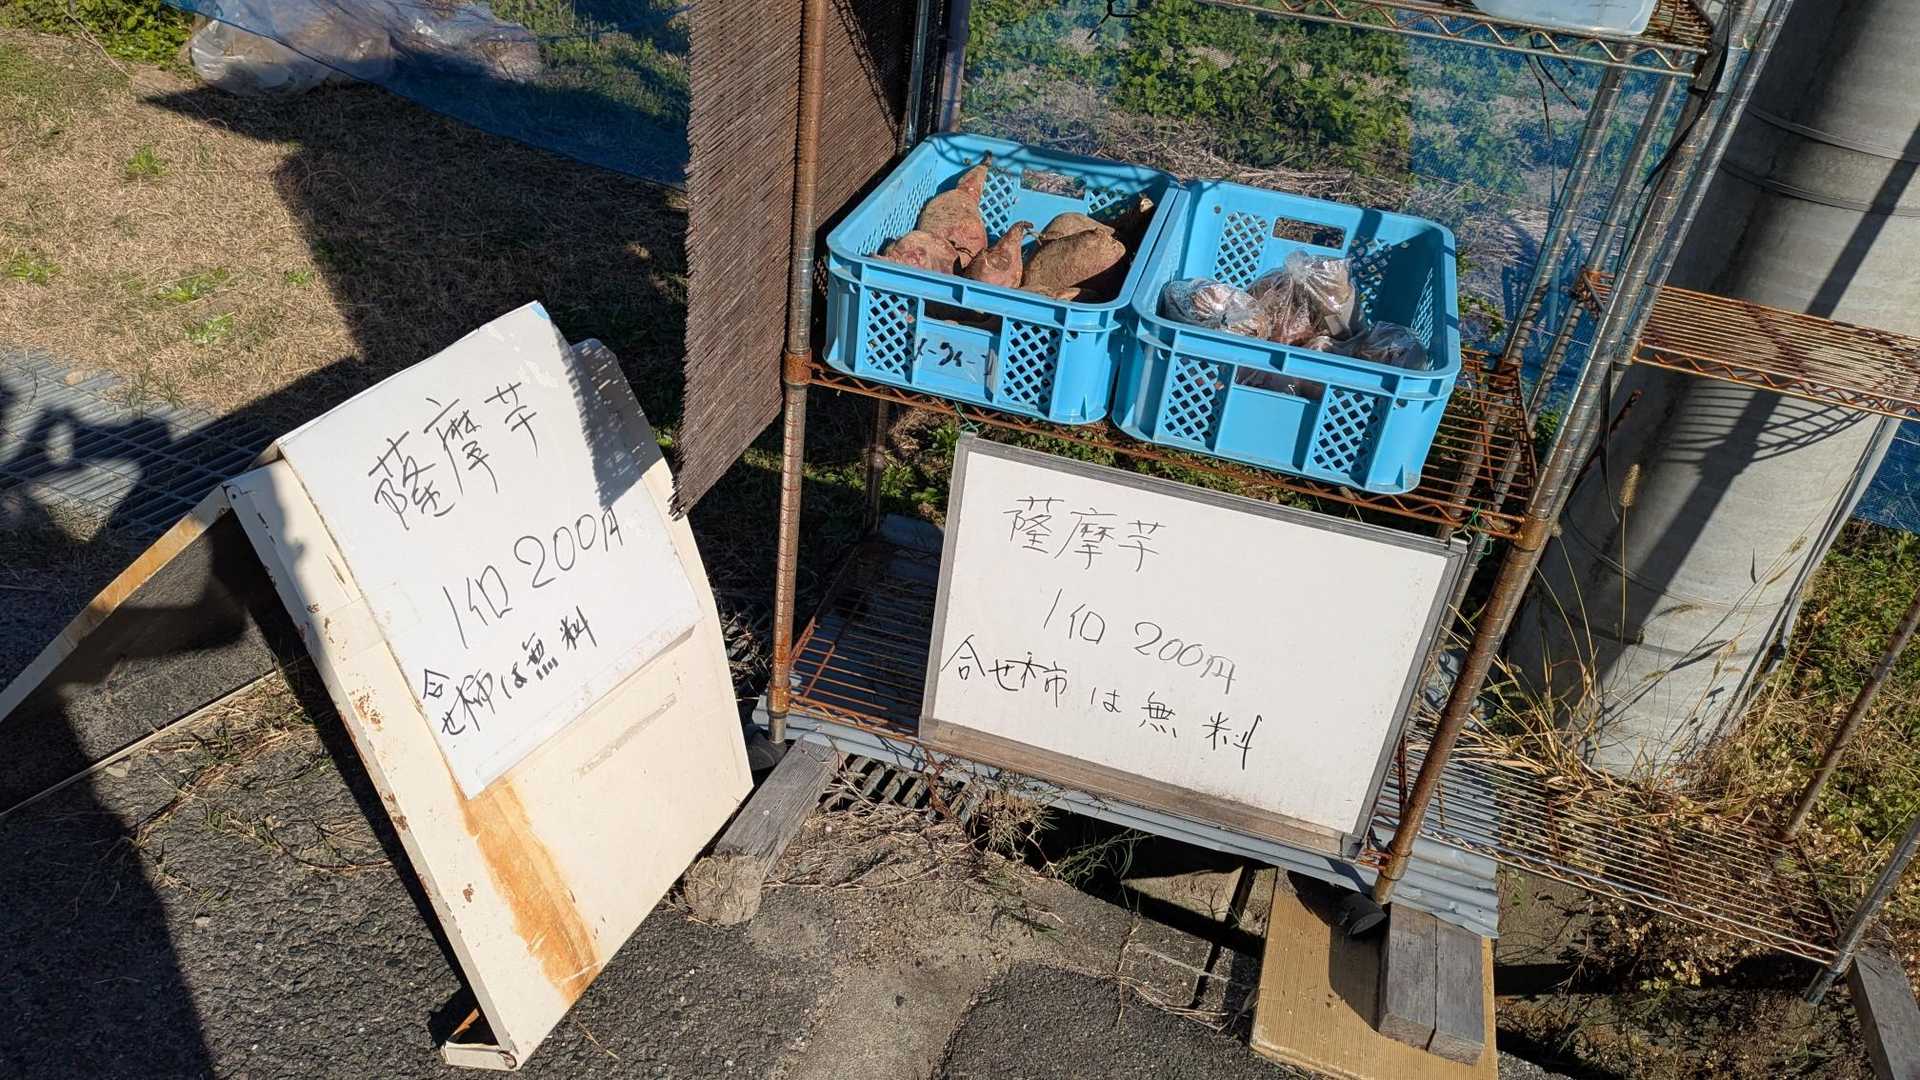 薩摩芋
1個 200円
合せ柿は無料
薩摩芋
1個 200円
合せ柿は無料